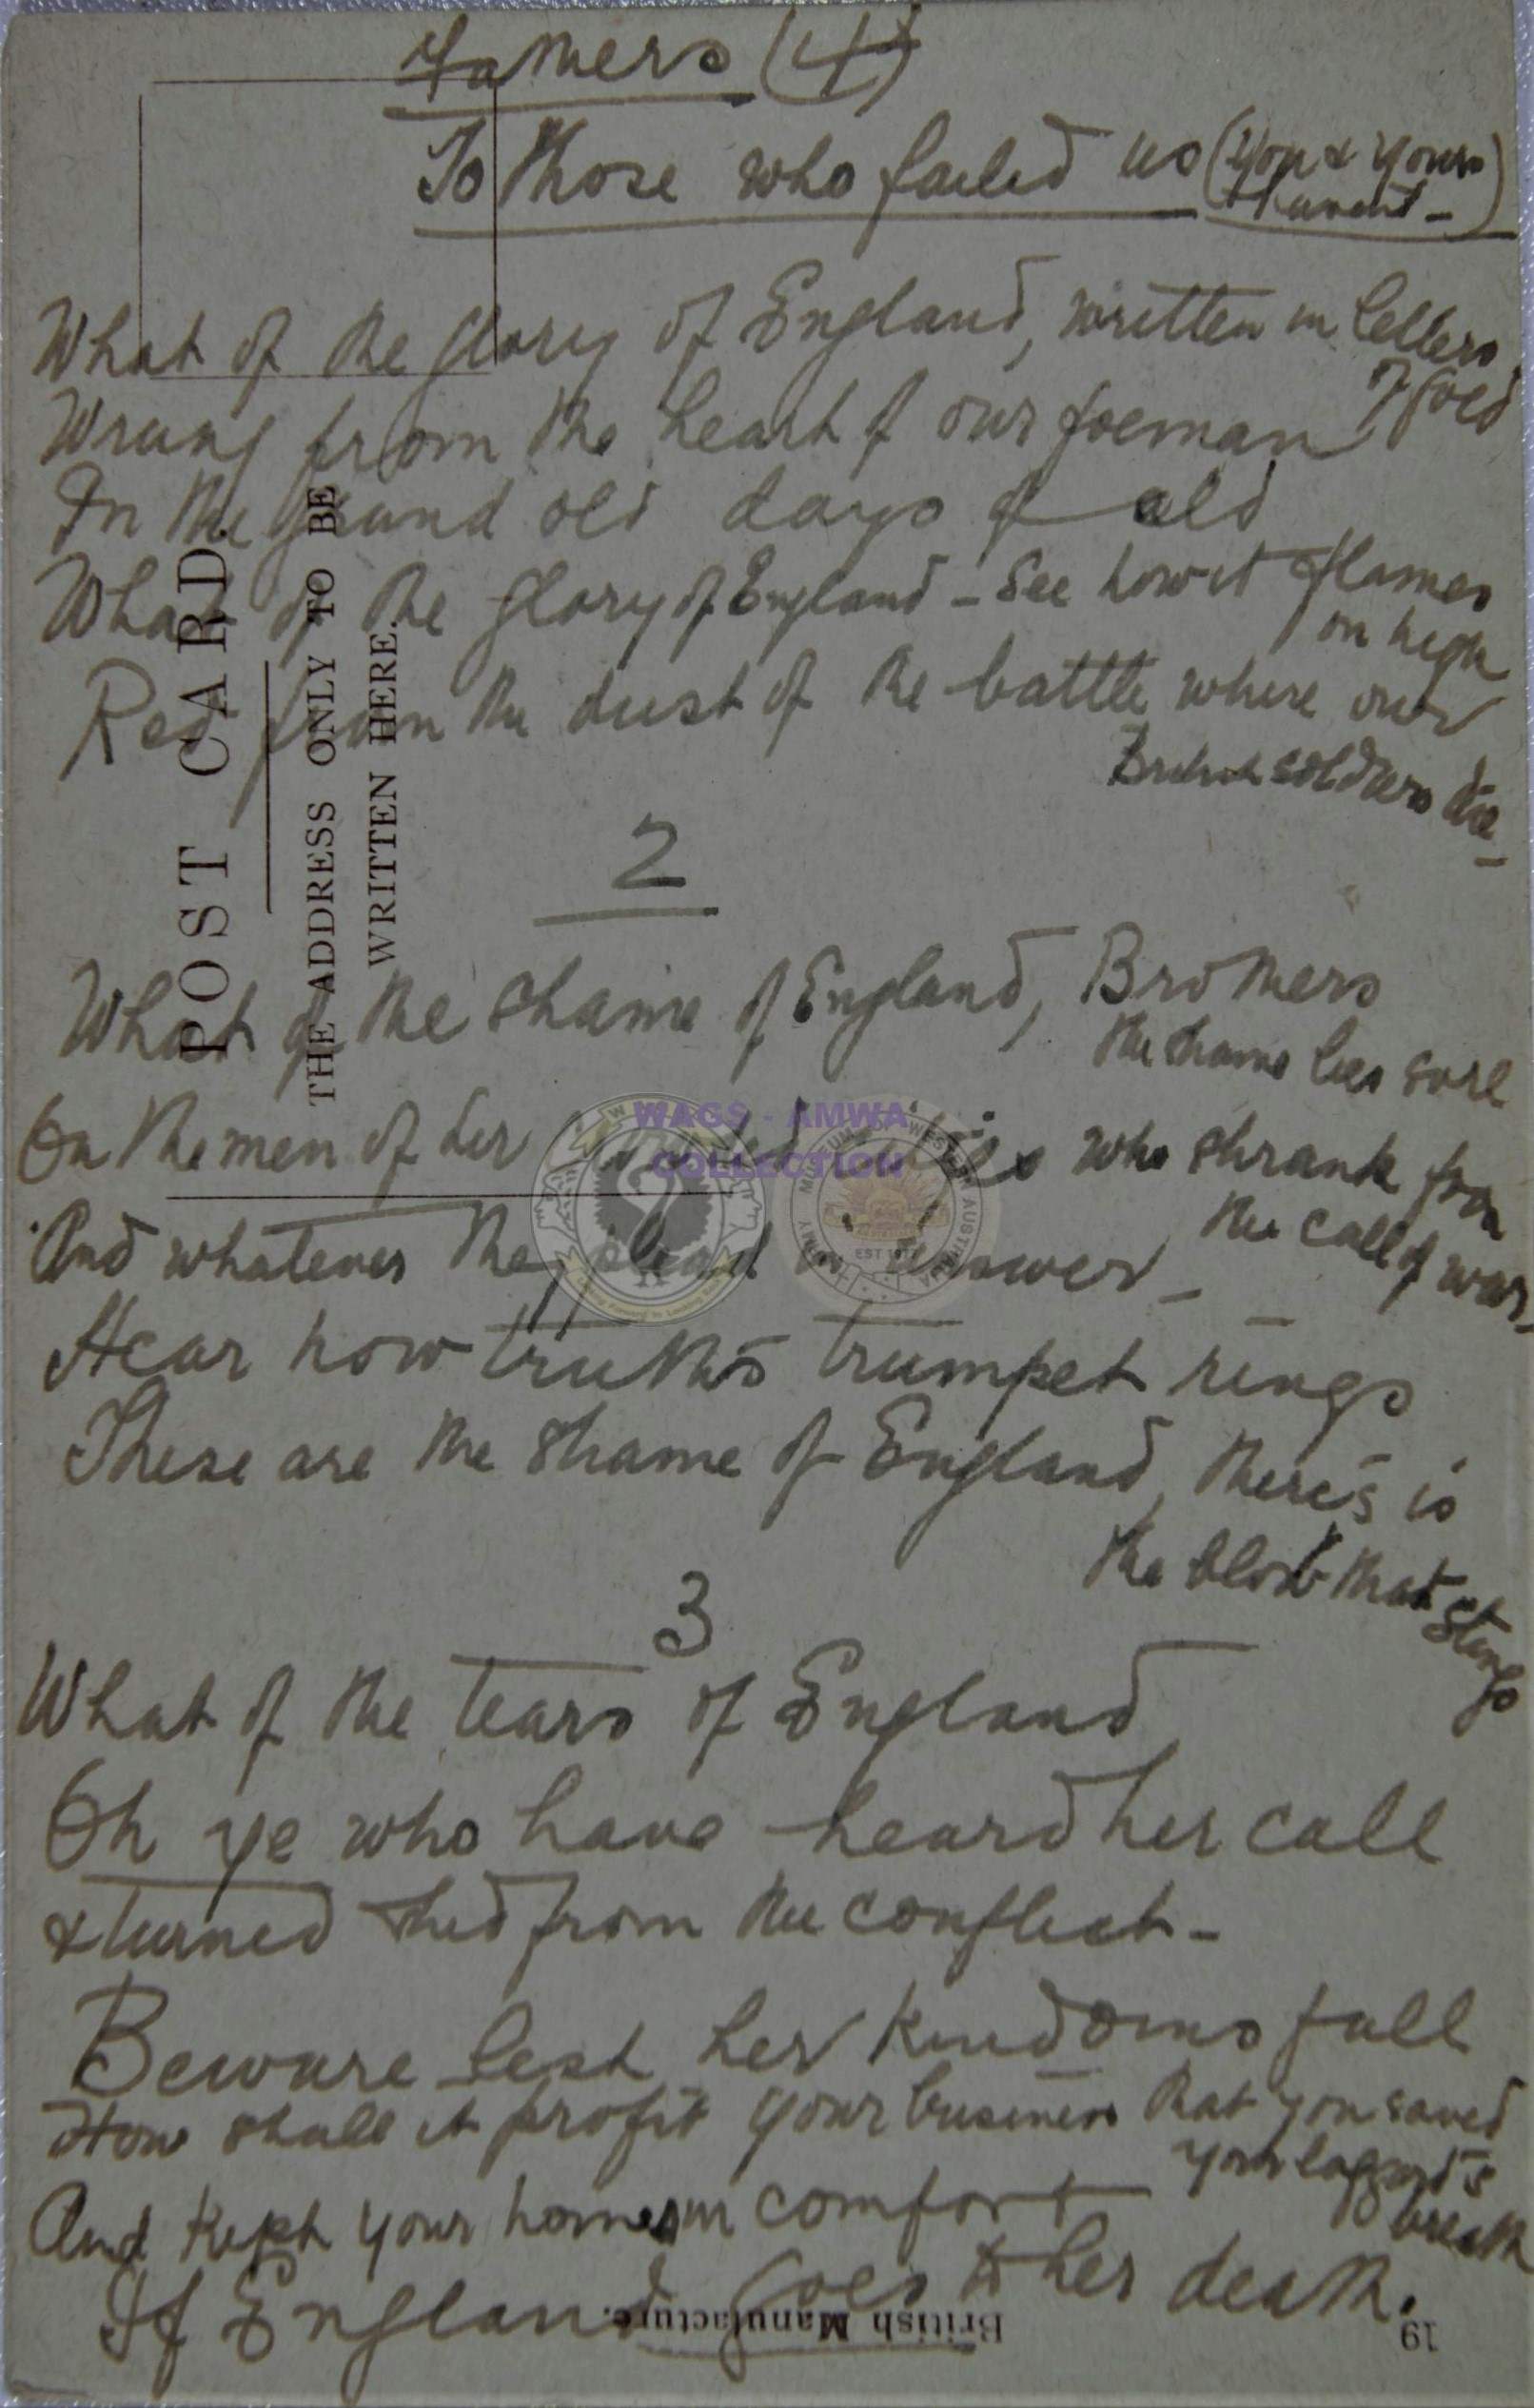 (4)
To those who failed us (You & yours
haven't -)
What of the glory of England, written in letters
of gold
Wrung from the heart of our foeman
In the grand old days of old
What of the glory of England - See how it flames
on high
Red from the dust of the battle where our
British soldiers die -
2
What of the shame of England, Brothers
the shame lies sore
On the men of her who shrank from
the call of war,
And whatever they plead in answer -
Hear how truth's trumpet rings
These are the shame of England, there's is
the blow that stings
3
What of the tears of England
Oh ye who have heard her call
& turned from the conflict -
Beware lest her fall
How shall it profit your business that you saved
your laggard's
breath
And kept your homes in comfort
If England goes to her death.
POST CARD.
THE ADDRESS ONLY TO BE
WRITTEN HERE.
WAGS - AMWA
COLLECTION
EST 1977
British Manufacture.
19